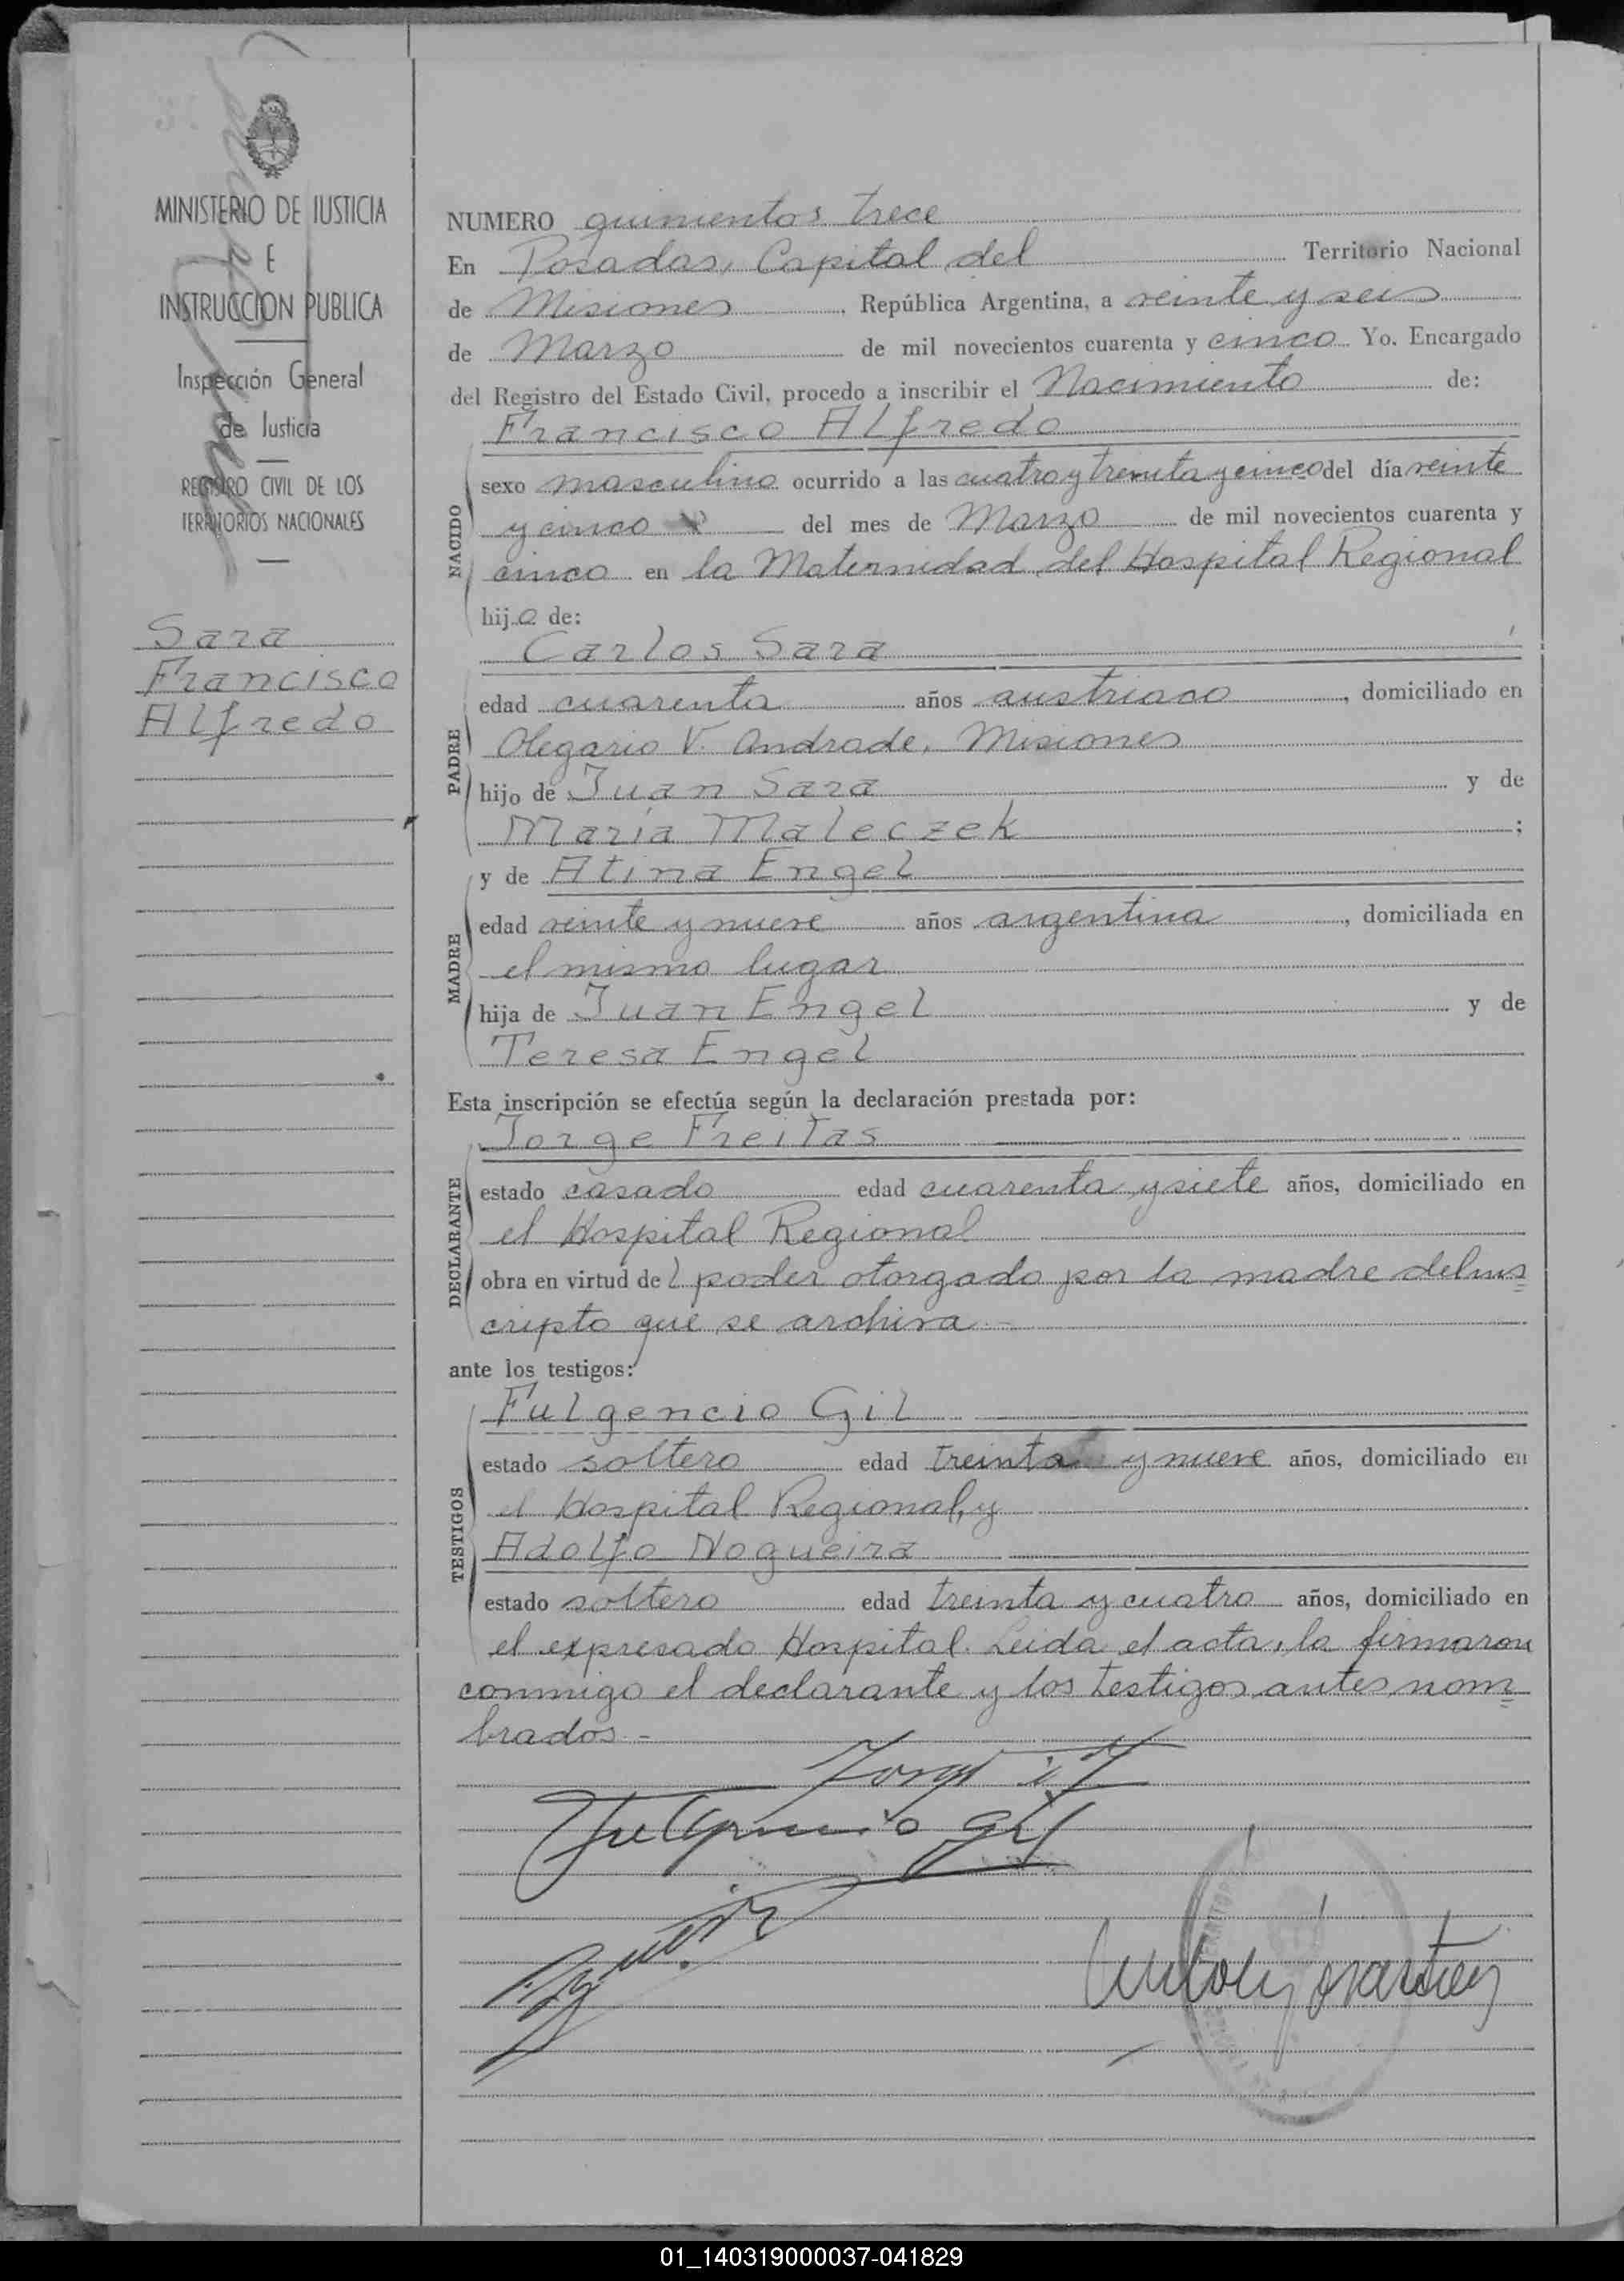 MINISTERIO DE JUSTICIA
E
INSTRUCCION PUBLICA
Inspección General
de Justicia
REGISTRO CIVIL DE LOS
TERRITORIOS NACIONALES
Sara
Francisco
Alfredo
NUMERO quinientos trece
En Posadas, Capital del Territorio Nacional
de Misiones, República Argentina, a veinte y seis
de Marzo de mil novecientos cuarenta y cinco Yo. Encargado
del Registro del Estado Civil, procedo a inscribir el Nacimiento de:
Francisco Alfredo
NACIDO
sexo masculino ocurrido a las cuatro y treinta y cinco del día veinte
y cinco del mes de Marzo de mil novecientos cuarenta y
cinco en la Maternidad del Hospital Regional
hijo de:
Carlos Sara
PADRE
edad cuarenta años austriaco, domiciliado en
Olegario V. Andrade, Misiones
hijo de Juan Sara y de
María Maleczek;
y de Atina Engel
MADRE
edad veinte y nueve años argentina, domiciliada en
el mismo lugar
hija de Juan Engel y de
Teresa Engel
Esta inscripción se efectúa según la declaración prestada por:
Jorge Freitas
DECLARANTE
estado casado edad cuarenta y siete años, domiciliado en
el Hospital Regional
obra en virtud del poder otorgado por la madre del ins=
cripto que se archiva -
ante los testigos:
Fulgencio Gil
TESTIGOS
estado soltero edad treinta y nueve años, domiciliado en
el Hospital Regional, y
Adolfo Nogueira
estado soltero edad treinta y cuatro años, domiciliado en
el expresado Hospital. Leida el acta, la firmaron
conmigo el declarante y los testigos antes nom=
brados -
Fulgencio Gil
01_140319000037-041829